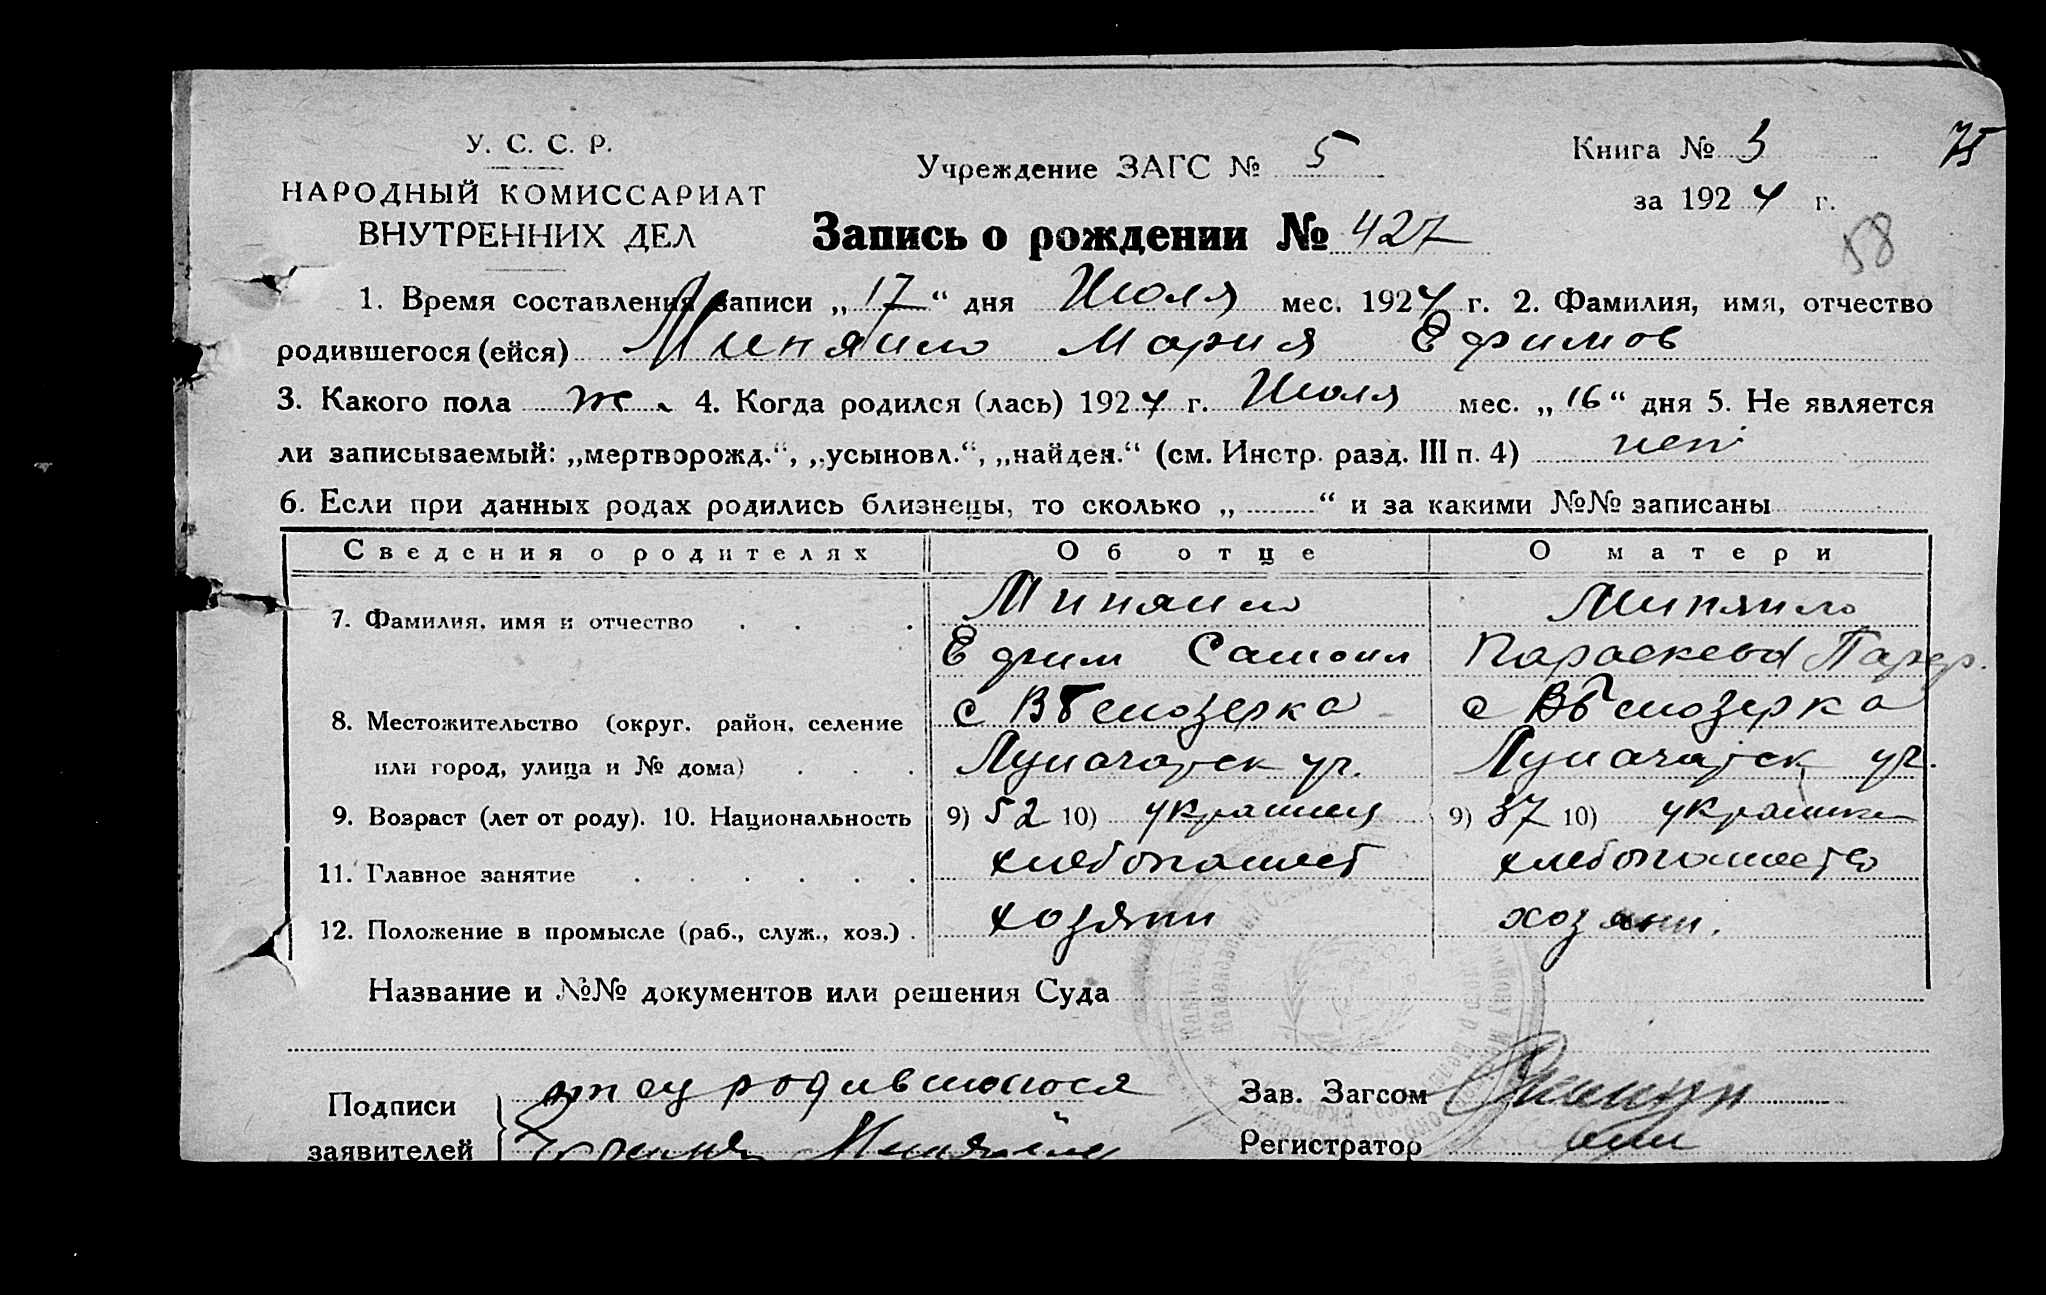 У. С. С. Р.
НАРОДНЫЙ КОМИССАРИАТ
ВНУТРЕННИХ ДЕЛ
Учреждение ЗАГС № 5
Книга № 3
за 1924 г.
75
58
Запись о рождении № 427
1. Время составления записи „17“ дня Июля мес. 1924 г. 2. Фамилия, имя, отчество
родившегося (ейся) Миняило Мария Ефимов
3. Какого пола ж. 4. Когда родился (лась) 1924 г. Июля мес. „16“ дня 5. Не является
ли записываемый: „мертворожд.“, „усыновл.“, „найден.“ (см. Инстр. разд. III п. 4) нет
6. Если при данных родах родились близнецы, то сколько „ “ и за какими №№ записаны
Сведения о родителях Об отце О матери
7. Фамилия, имя и отчество Миняило Миняило
Ефим Самоил Параскева
8. Местожительство (округ, район, селение с Белозерка с Белозерка
или город, улица и № дома)
9. Возраст (лет от роду). 10. Национальность 9) 52 10) украинец 9) 37 10) украинка
11. Главное занятие хлебопашест хлебопашество
12. Положение в промысле (раб., служ., хоз.) хозяин хозяин.
Название и №№ документов или решения Суда
Подписи отец родившегося Зав. Загсом
заявителей Регистратор